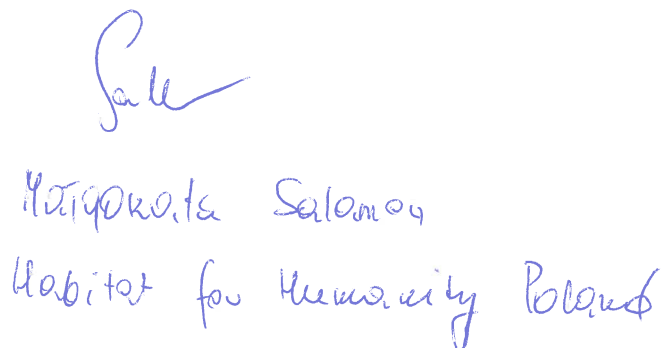 Małgorzata Salamon
Habitat for Humanity Poland